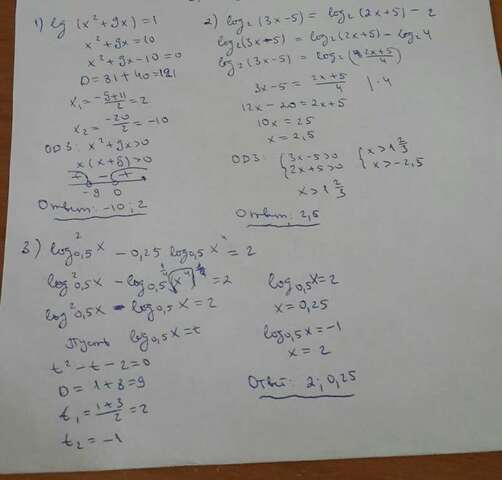 1) lg (x² + 9x) = 1
x² + 9x = 10
x² + 9x - 10 = 0
D = 81 + 40 = 121
x₁ = (-9+11)/2 = 2
x₂ = -20/2 = -10
ОДЗ: x² + 9x > 0
x(x+9) > 0
+ - +
-9 0
Ответ: -10; 2
2) log₂(3x-5) = log₂(2x+5) - 2
log₂(3x-5) = log₂(2x+5) - log₂4
log₂(3x-5) = log₂((2x+5)/4)
3x-5 = (2x+5)/4 | · 4
12x - 20 = 2x+5
10x = 25
x = 2,5
ОДЗ: {3x-5>0 {x > 1 2/3
{2x+5>0 {x > -2,5
x > 1 2/3
Ответ: 2,5
3) log²₀,₅x - 0,25 log₀,₅x⁴ = 2
log²₀,₅x - log₀,₅(x⁴)^¼ = 2
log²₀,₅x - log₀,₅x = 2
Пусть log₀,₅x = t
t² - t - 2 = 0
D = 1 + 8 = 9
t₁ = (1+3)/2 = 2
t₂ = -1
log₀,₅x = 2
x = 0,25
log₀,₅x = -1
x = 2
Ответ: 2; 0,25